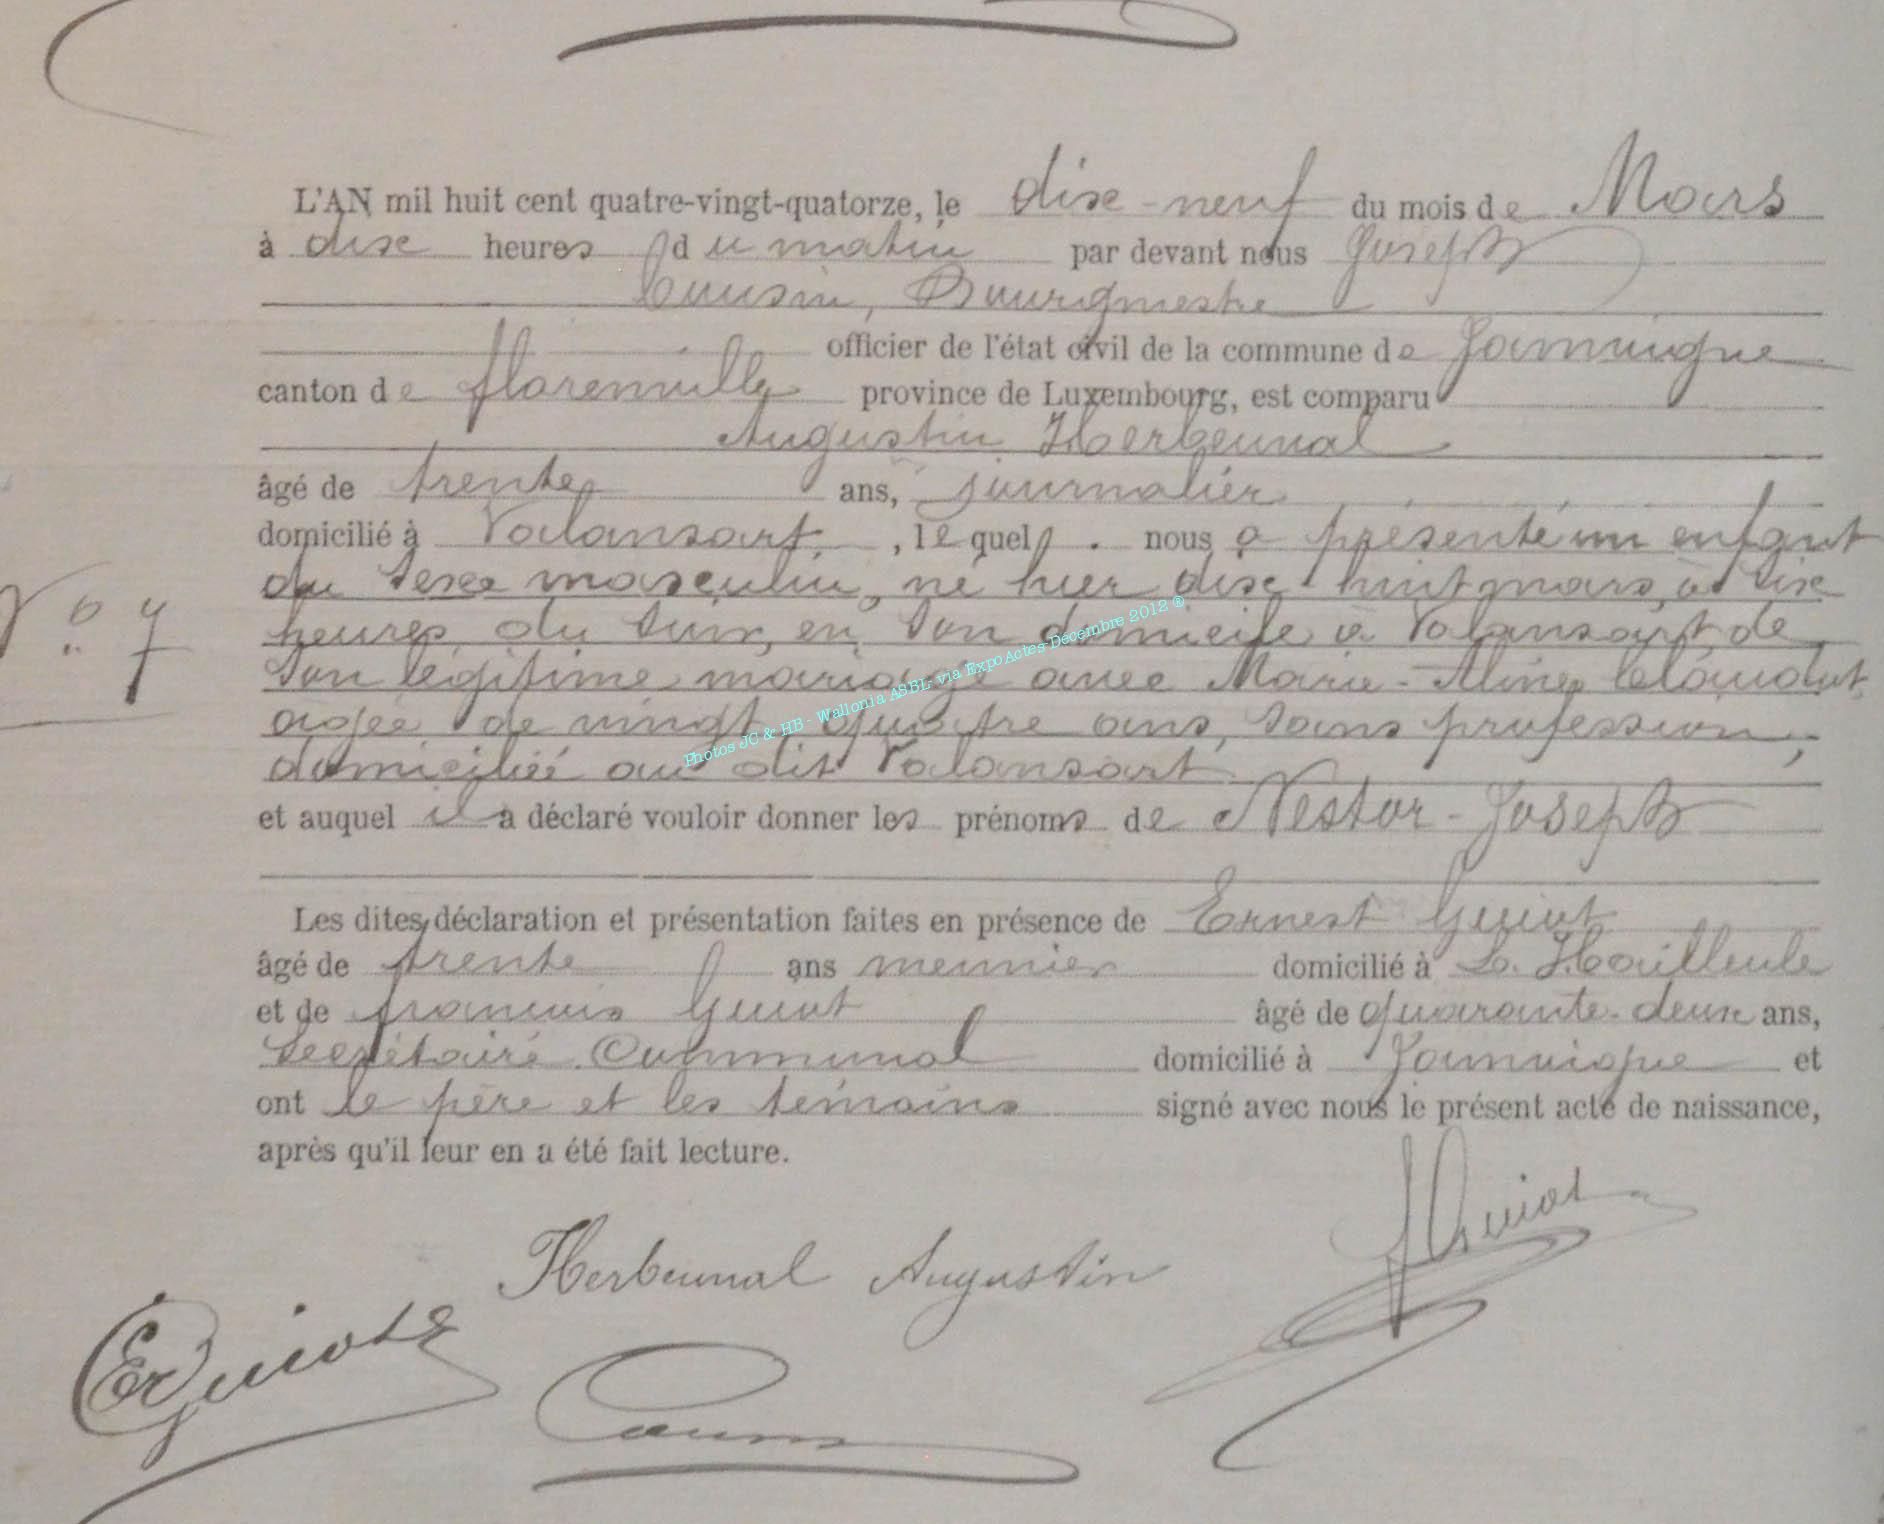 L'AN mil huit cent quatre-vingt-quatorze, le dix-neuf du mois de Mars
à dix heures du matin par devant nous Joseph
Cousin, Bourgmestre
officier de l'état civil de la commune de Jamoigne
canton de florenville province de Luxembourg, est comparu
Augustin Herbeuval
âgé de trente ans, journalier
domicilié à Valansart, lequel nous a présenté un enfant
du sexe masculin, né hier dix-huit mars, à six
N° 7
heures du soir, en son domicile à Valansart, de
son légitime mariage avec Marie-Aline
agée de vingt quatre ans, sans profession,
domiciliée au dit Valansart
Photos JC & HB - Wallonia ASBL- via ExpoActes-Décembre 2012 ®
et auquel il a déclaré vouloir donner les prénoms de Nestor-Joseph
Les dites déclaration et présentation faites en présence de Ernest Guiot
âgé de trente ans meunier domicilié à La Hailleule
et de françois Guiot âgé de quarante-deux ans,
secrétaire communal domicilié à Jamoigne et
ont le père et les témoins signé avec nous le présent acte de naissance,
après qu'il leur en a été fait lecture.
F Guiot
Herbeuval Augustin
Er Guiot
Cousin